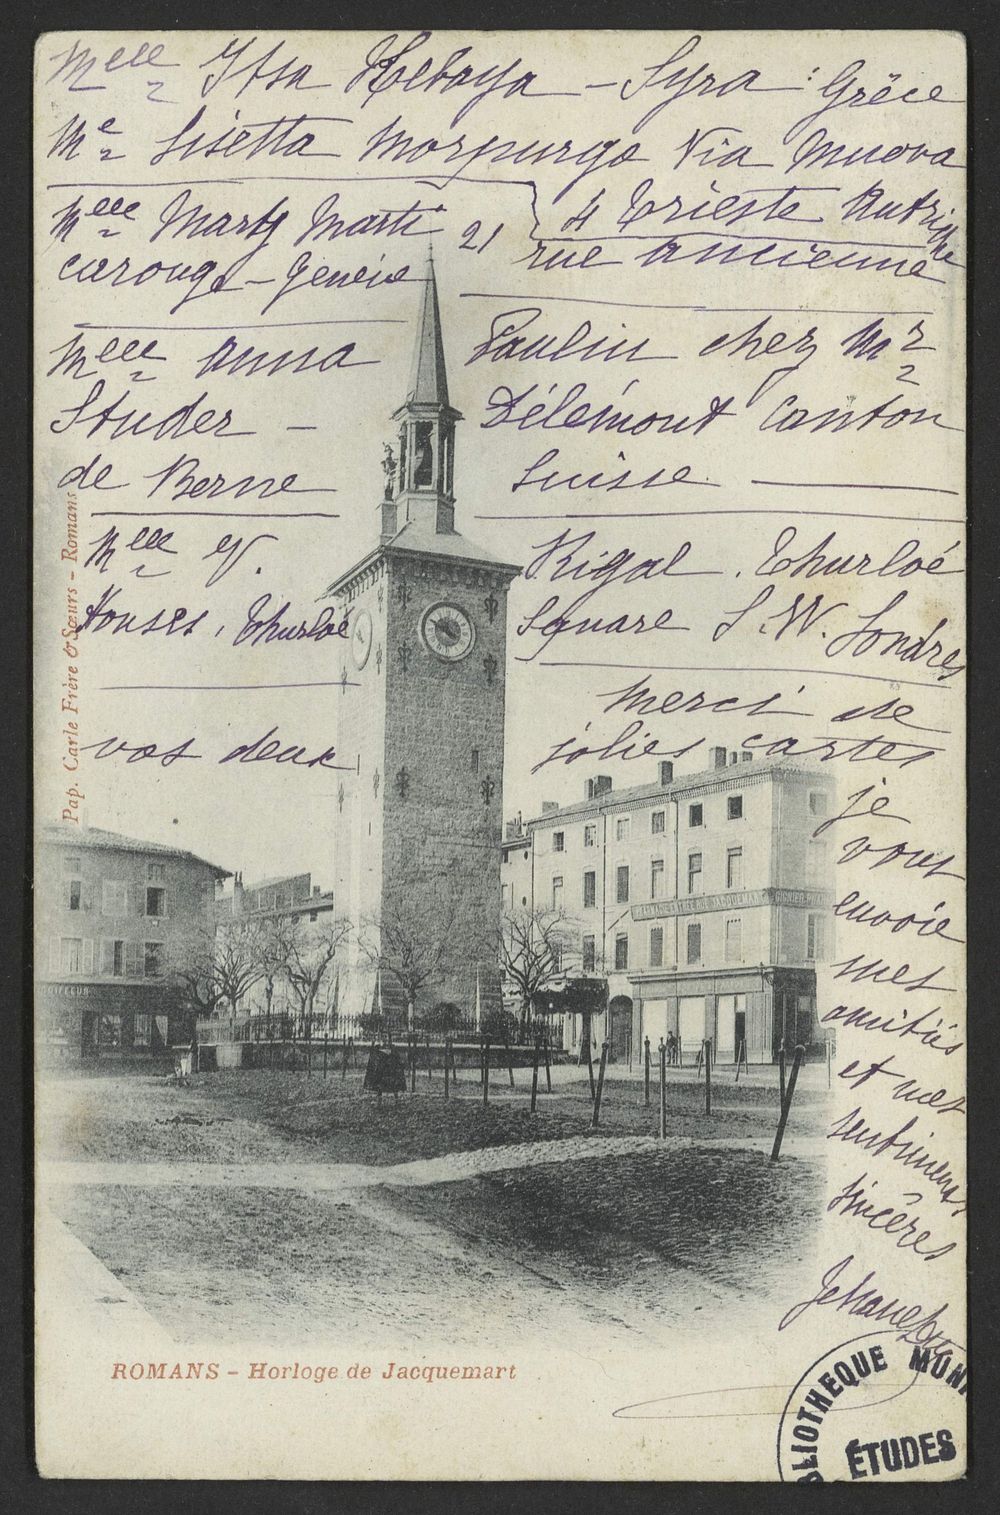 Melle Itsa Rebaya - Syra : Grèce
Me Lisetta Morpurgo Via Nuova
4 Trieste Autriche
Melle Marty Marti 21 rue ancienne
carouge - Genève
Melle Anna Paulin chez Mr
Studer - Délémont Canton
de Berne Suisse
Melle V. Rigal, Thurloé
Houses, Thurloé Square S.W. Londres
Merci de
vos deux jolies cartes
je
vous
envoie
mes
amitiés
et mes
sentiments
sincères
Pap. Carle Frère & Sœurs - Romans
ROMANS - Horloge de Jacquemart
BLIOTHEQUE MUNI
ÉTUDES